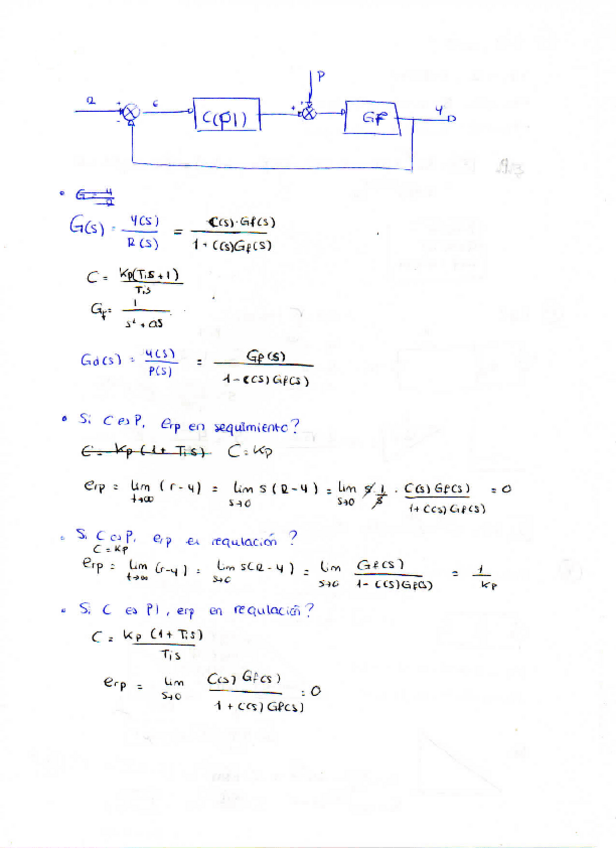 P
R + - e C(PI) + + Gp Y
G = Y/R
G(s) = Y(s)/R(s) = C(s)·Gp(s) / 1 + C(s)Gp(s)
C = Kp(Tis+1) / Tis
Gp = 1 / s² + as
Gd(s) = Y(s)/P(s) = Gp(s) / 1 - C(s)Gp(s)
• Si C es P, Erp en seguimiento?
C = Kp (1 + Tis) C = Kp
erp = lim t→∞ (r-y) = lim s→0 s(R-Y) = lim s→0 s 1/s · C(s)Gp(s) / 1+C(s)Gp(s) = 0
• Si C es P, erp en regulación?
C = Kp
erp = lim t→∞ (r-y) = lim s→0 s(R-Y) = lim s→0 Gp(s) / 1 - C(s)Gp(s) = 1/Kp
• Si C es PI, erp en regulación?
C = Kp (1+Tis) / Tis
erp = lim s→0 C(s) Gp(s) / 1 + C(s) Gp(s) = 0